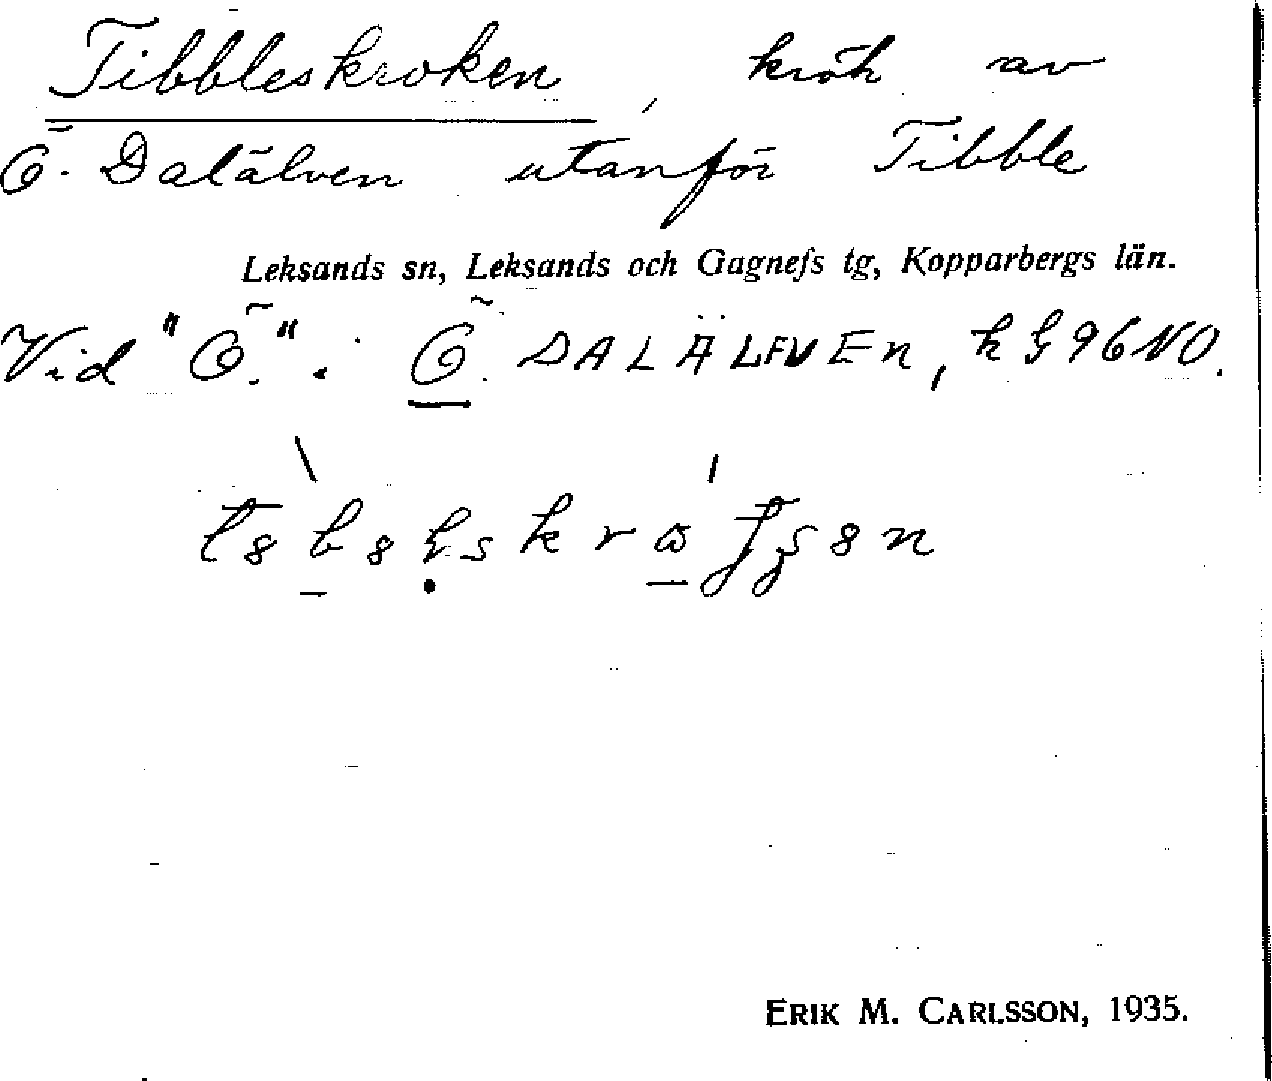 Tibbleskroken, krök av
Ö. Dalälven utanför Tibble
Leksands sn, Leksands och Gagnefs tg, Kopparbergs län.
Vid "Ö.". Ö. DALÄLFVEN, k 96 NO.
ERIK M. CARLSSON, 1935.